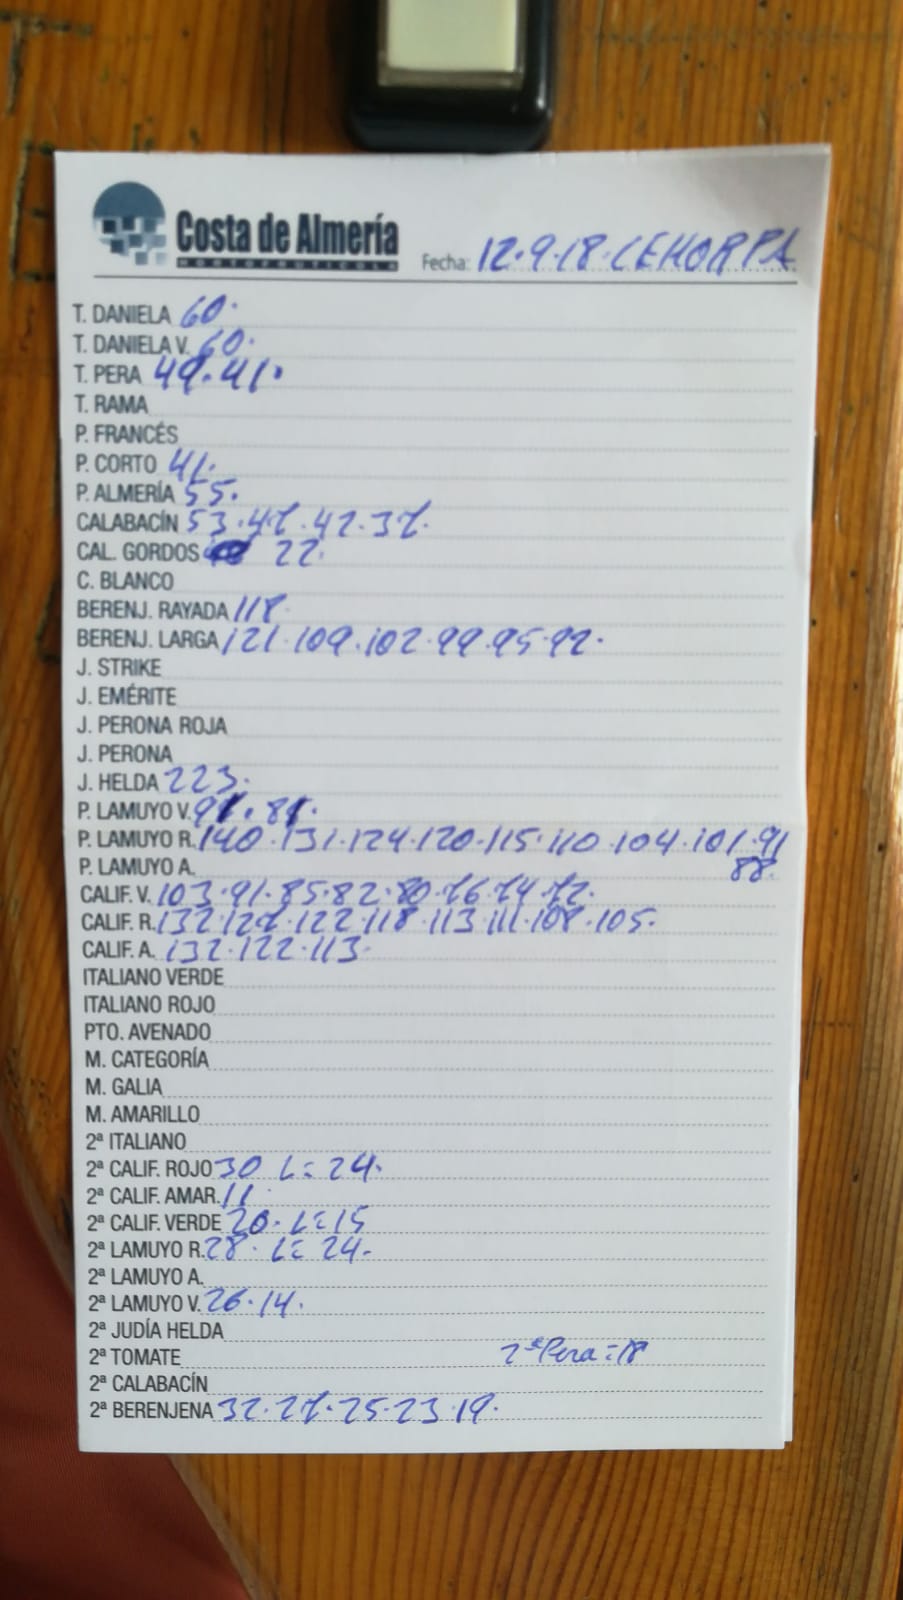 Costa de Almería
HORTOFRUTÍCOLA
Fecha: 12.9.18. CEHORPA
T. DANIELA 60.
T. DANIELA V. 60.
T. PERA 49.41.
T. RAMA
P. FRANCÉS
P. CORTO 41.
P. ALMERÍA 55.
CALABACÍN 53.47.42.37.
CAL. GORDOS 22.
C. BLANCO
BERENJ. RAYADA 118.
BERENJ. LARGA 121.109.102.99.95.92.
J. STRIKE
J. EMÉRITE
J. PERONA ROJA
J. PERONA
J. HELDA 223.
P. LAMUYO V. 91.81.
P. LAMUYO R. 140.131.124.120.115.110.104.101.91
P. LAMUYO A. 88.
CALIF. V. 103.91.85.82.80.76.74.72.
CALIF. R. 132.127.122.118.113.111.108.105.
CALIF. A. 132.122.113.
ITALIANO VERDE
ITALIANO ROJO
PTO. AVENADO
M. CATEGORÍA
M. GALIA
M. AMARILLO
2ª ITALIANO
2ª CALIF. ROJO 30 L= 24.
2ª CALIF. AMAR. 11.
2ª CALIF. VERDE 20. L=15
2ª LAMUYO R. 28. L= 24.
2ª LAMUYO A.
2ª LAMUYO V. 26.14.
2ª JUDÍA HELDA
2ª TOMATE 2ª Pera=18
2ª CALABACÍN
2ª BERENJENA 32.27.25.23.19.